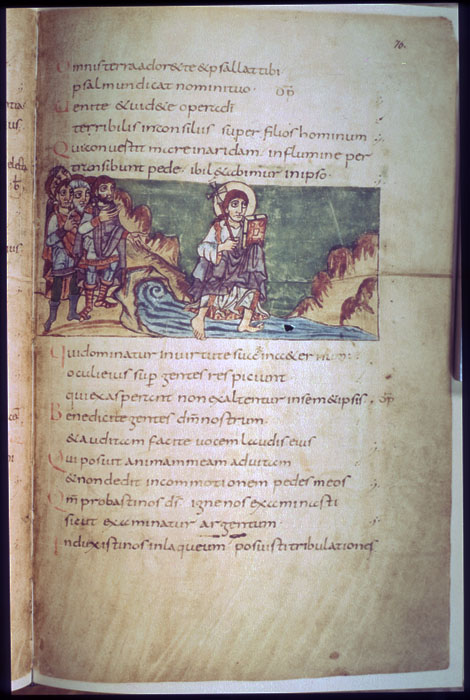 76.
Omnis terra ador&te &psallat tibi
psalmum dicat nomini tuo
Uenite &uid&e opera dī
terribilis in consiliis super filios hominum
Qui conuertit mare in aridam · in flumine per
transibunt pede · ibi l&abimur in ipso
Qui dominatur in uirtute sua in
oculi eius sup gentes respiciunt
qui exasperant non exaltentur in sem&ipsis
Benedicite gentes dm̄ nostrum
&auditam facite uocem laudis eius
Qui posuit animam meam ad uitam
&non dedit in commotionem pedes meos
Qm̄ probasti nos dś igne nos examinasti
sicut examinatur argentum
Induxisti nos in laqueum posuisti tribulationes